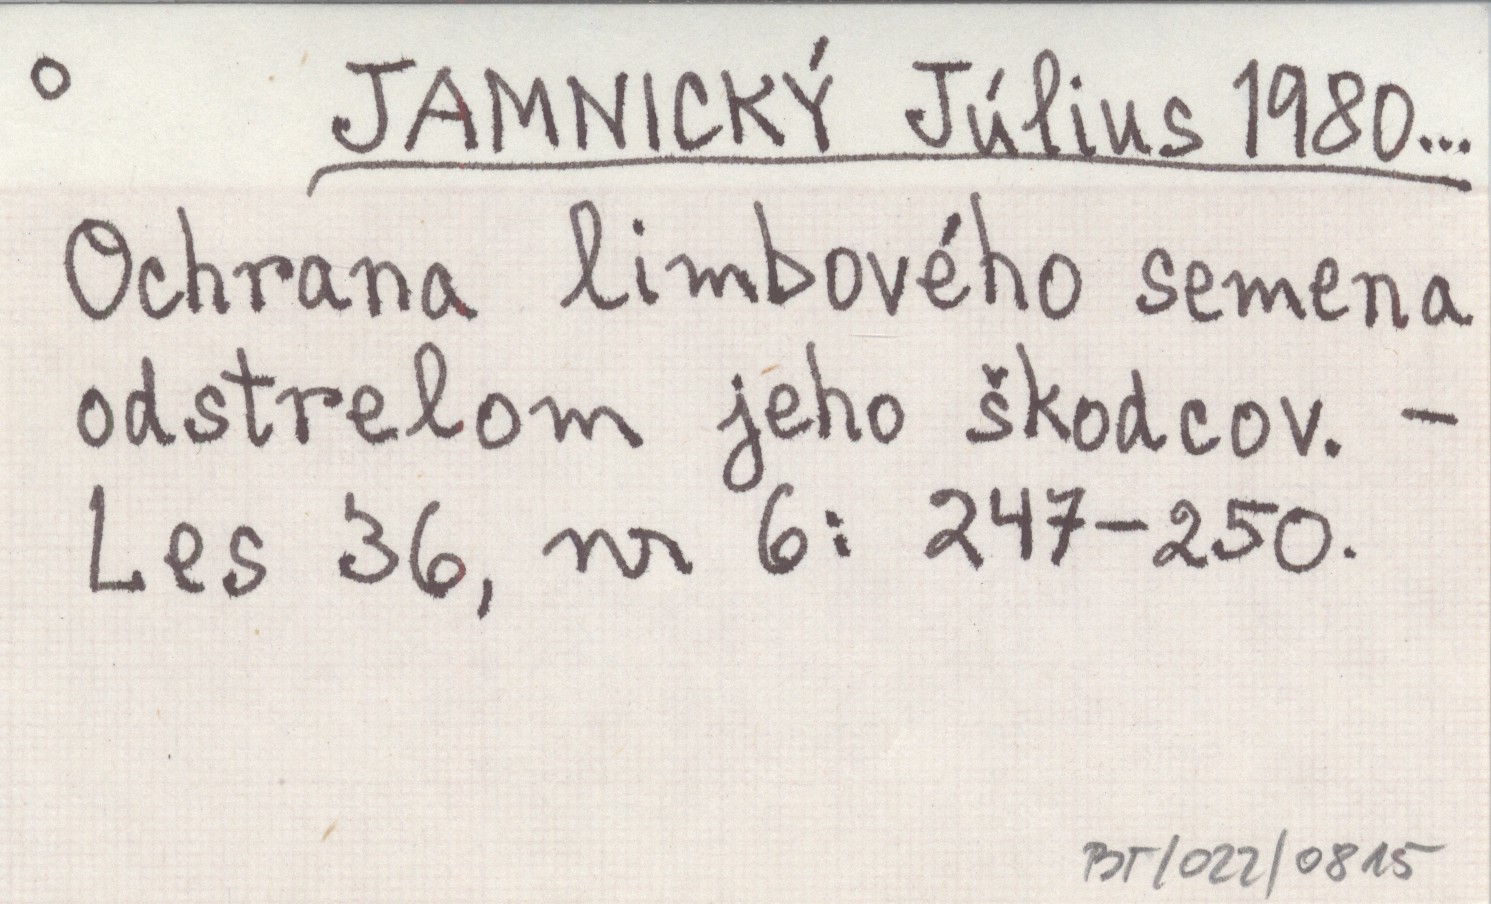 JAMNICKÝ Július 1980...
Ochrana limbového semena
odstrelom jeho škodcov. –
Les 36, nr 6: 247–250.
BT/022/0815